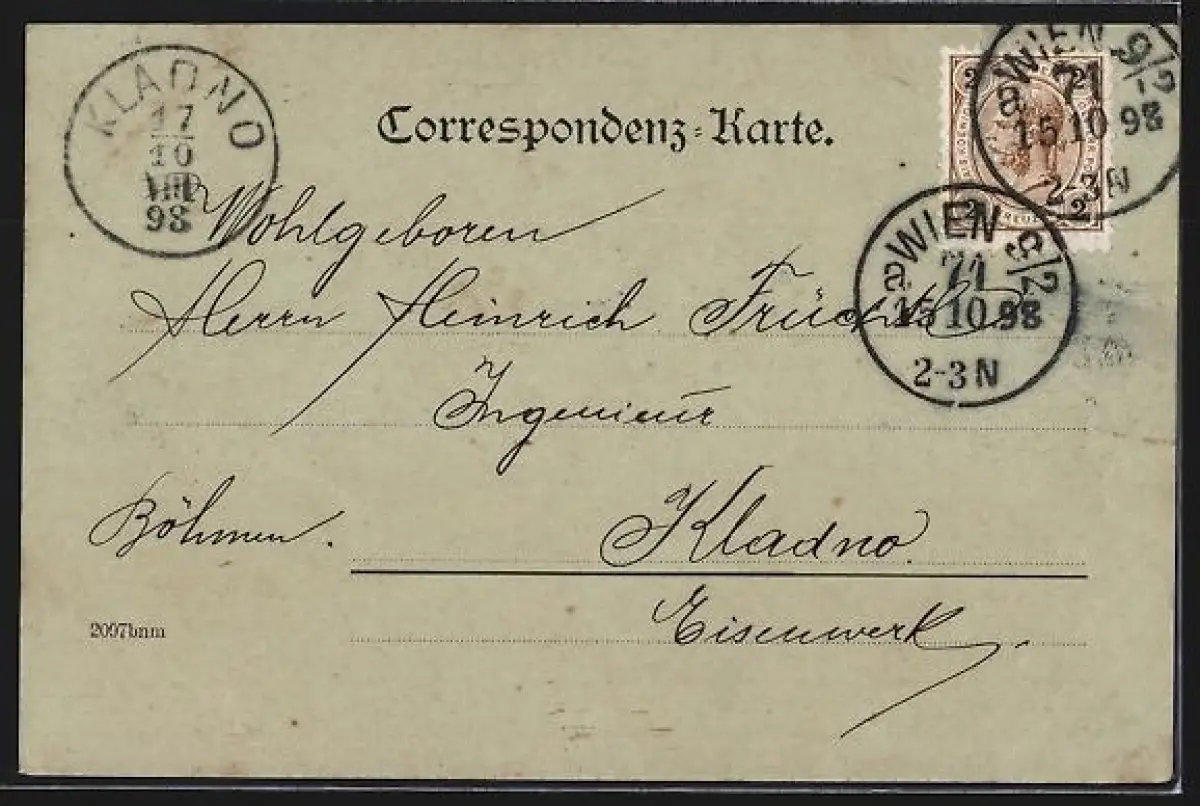 KLADNO
17
10
98
Correspondenz-Karte.
2 2
WIEN 9/2
a 71
15.10.98
2-3N
WIEN 9/2
a 71
15.10.98
2-3N
Wohlgeboren
Herrn Heinrich
Ingenieur
Böhmen. Kladno
Eisenwerk.
2097bnm